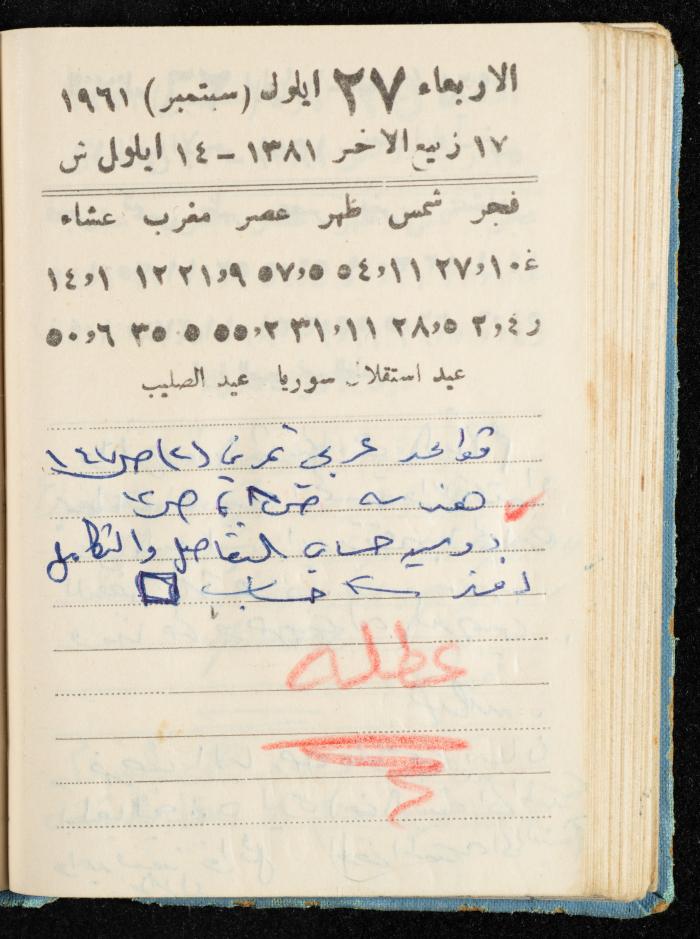 الاربعاء ٢٧ ايلول (سبتمبر) ١٩٦١
١٧ ربيع الاخر ١٣٨١ – ١٤ ايلول ش
فجر شمس ظهر عصر مغرب عشاء
غ ١٠,٢٧ ١١,٥٤ ٥,٥٧ ٩,٢١ ١٢ ١,١٤
ز ٤,٢ ٥,٢٨ ١١,٣١ ٢,٥٥ ٥ ٣٥ ٦,٥٠
عيد استقلال سوريا عيد الصليب
قواعد عربي تمرين (٢) ص ١٤٧
هندسة ص
دوسيه حساب التفاضل والتكامل
حساب
عطله
٤